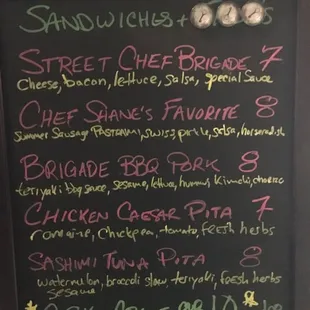 SANDWICHES +
STREET CHEF BRIGADE 7
cheese, bacon, lettuce, salsa, special sauce
CHEF SHANE'S FAVORITE 8
Summer Sausage PASTRAMI, swiss, pickle, salsa, horseradish
BRIGADE BBQ PORK 8
teriyaki bbq sauce, sesame, lettuce, hummus, Kimchi,
CHICKEN CAESAR PITA 7
romaine, chickpea, tomato, fresh herbs
SASHIMI TUNA PITA 8
watermelon, broccoli slaw, teriyaki, fresh herbs
sesame
10